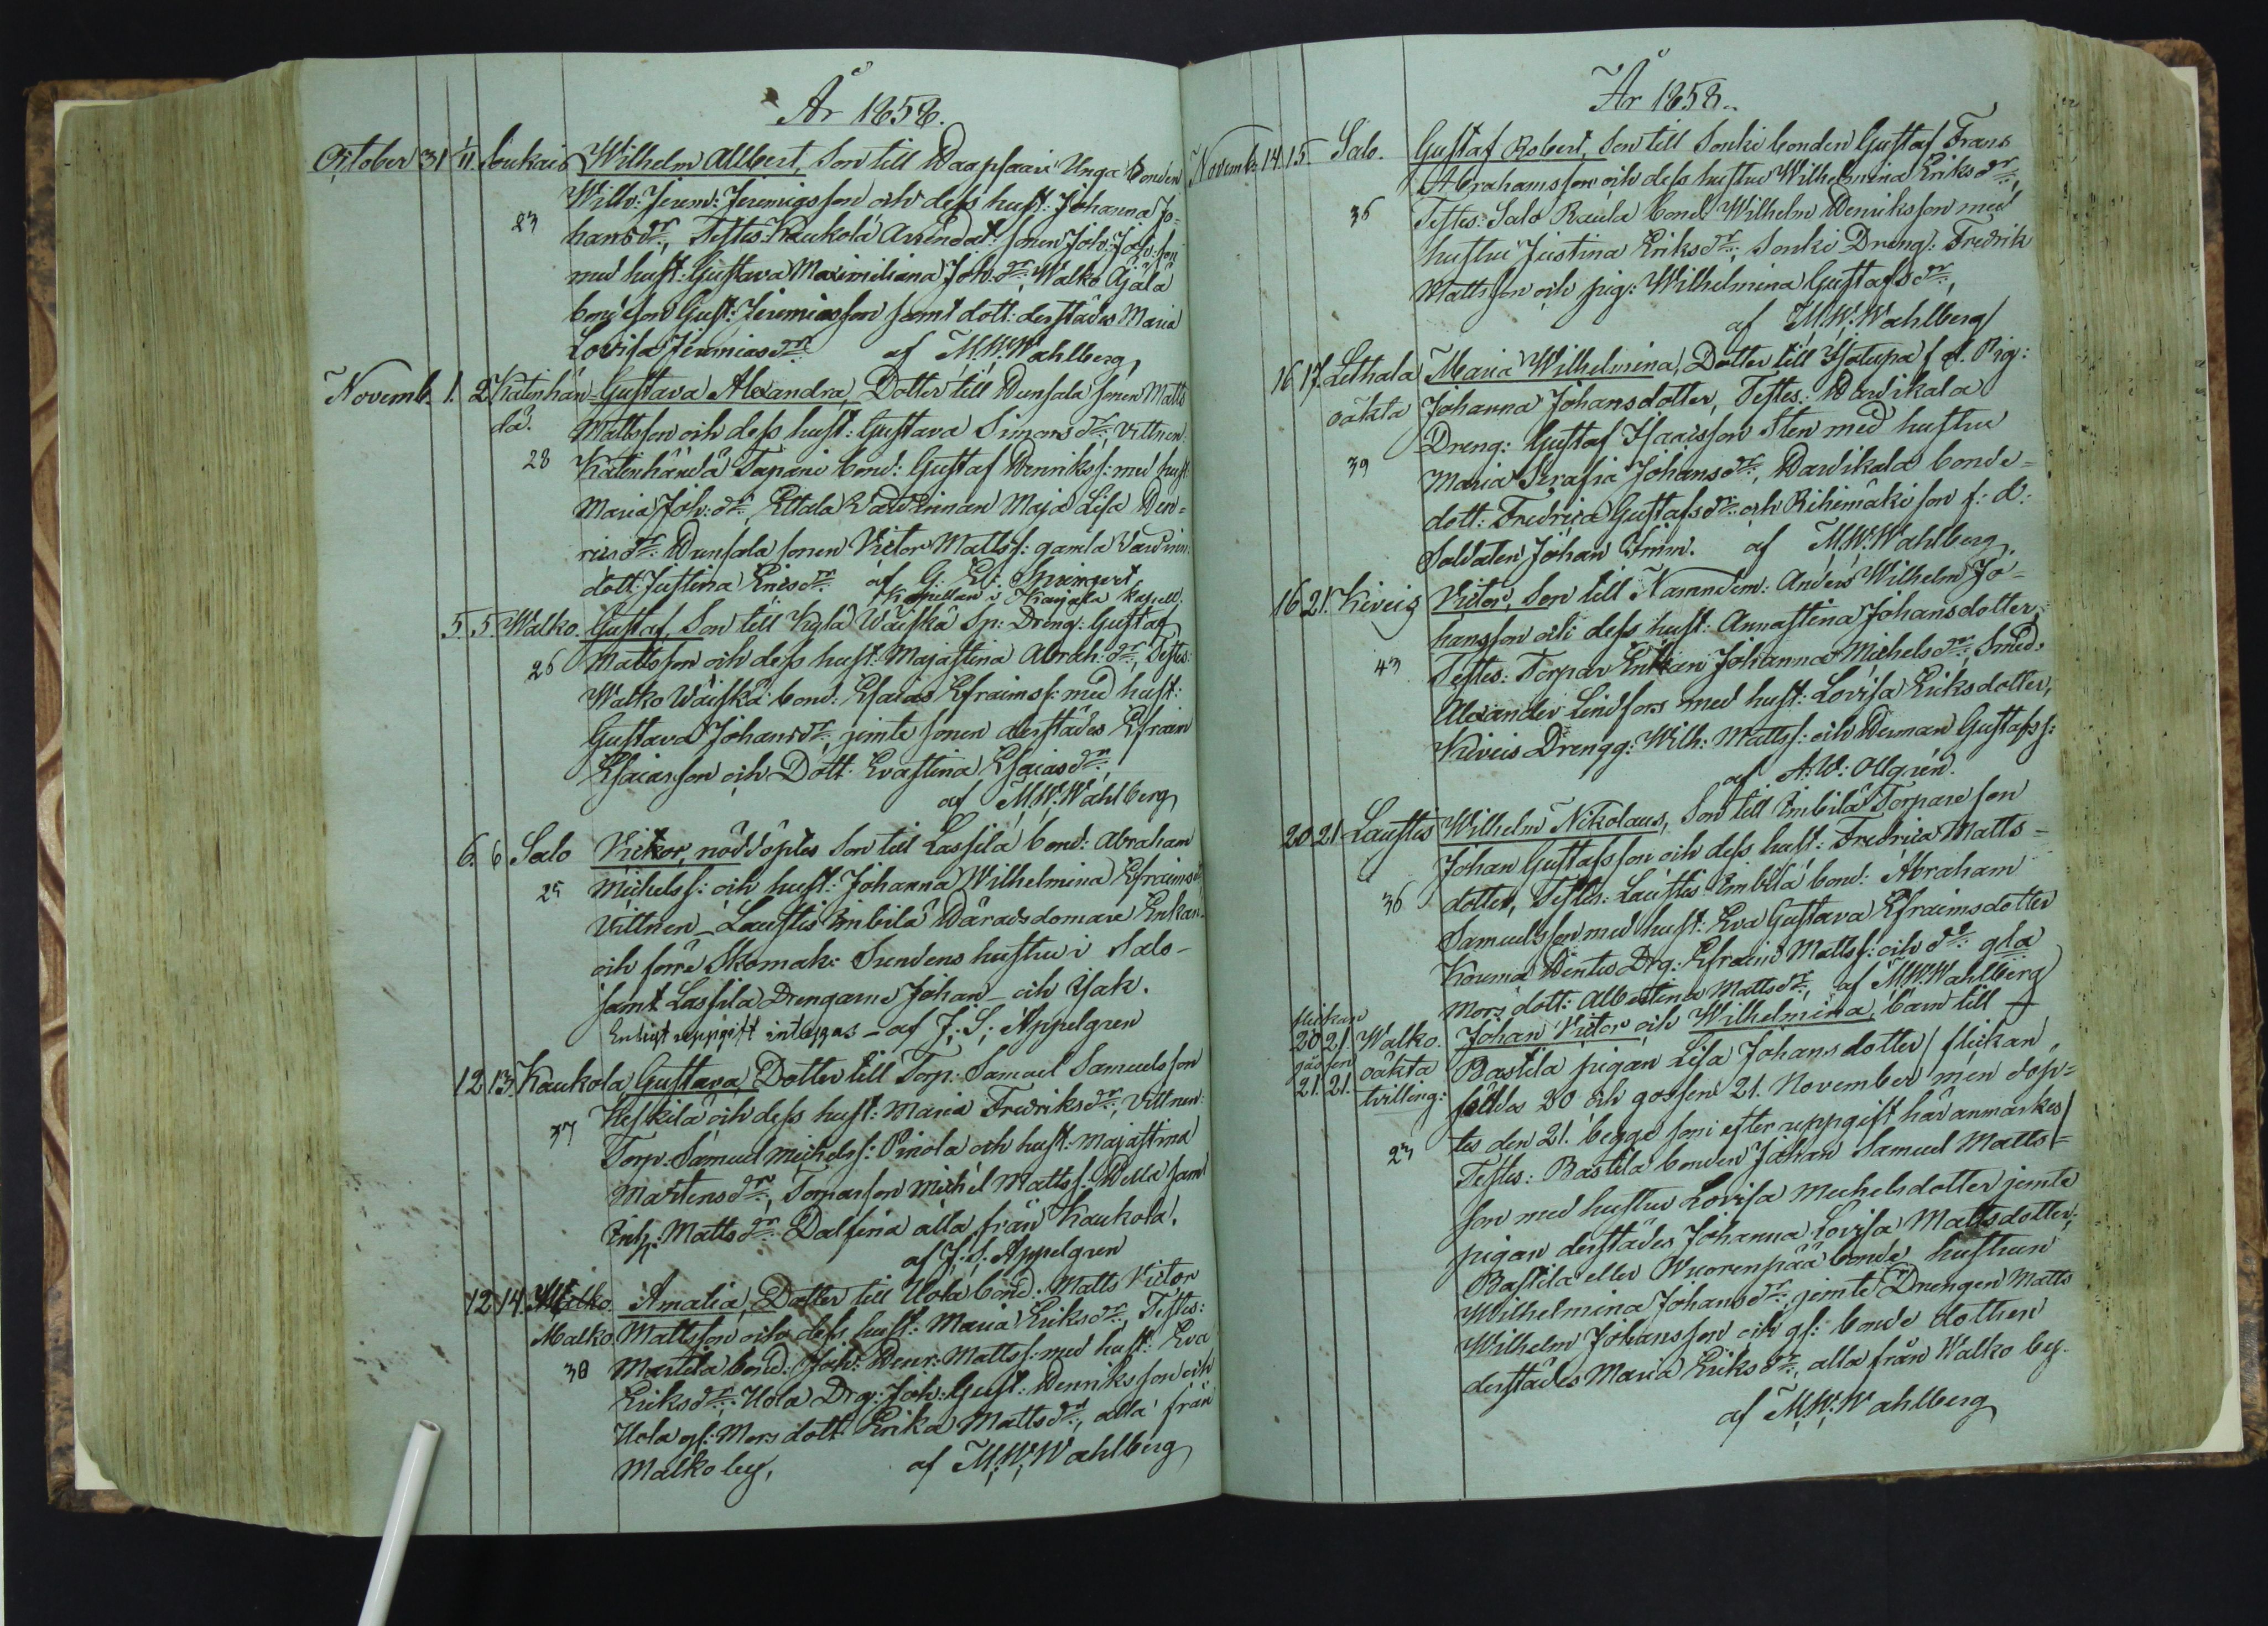 År 1858.
October 31 1/11. Soukais Wilhelm Allbert, Son till Haapsaari Unga bonden
Wilh: Jerem: Jeremigsson och dess hust: Johanna Jo=
23 hansdr., Testes: Kaukola Arrendat: sonen Joh: Joh:son
med hust: Gustava Maximiliana Joh:dr. Walko Äjälä
bond son Gust: Jeremiasson samt dott: derstädes Maria
Lovisa Jeremiasdr. af M.W.Wahlberg,
Novemb. 1. 2 Katinhän= Gustava Alexandra, Dotter till Hunsala sonen Matts
dä. Mattsson och dess hust: Gustava Simonsdr., Vittnen
28 Katinhändä Tapani bond: Gustaf Henrikss: med hust
Maria Joh:dr., Ettala Wärdinnan Maja Lisa Hen=
ricsdr. Hunsala sonen Victor Mattss: gamla Värdinn:
dott: Justina Ericsdr. af G: Ef. Spimpert
Kapellan i Karjala kapell:
5 5 Walko. Gustaf, Son till Kylä Wäiskä Sp: Dreng: Gustaf
26 Mattsson och dess hust: Majastina Abrah:dr., Testes:
Walko Wäiskä bond: Esaias Efraimss: med hust:
Gustava Johansdr., jemte sonen derstädes Efraim
Esaiasson och Dott: Evastina Esaiasdr.,
af M.W.Wahlberg
6. 6 Salo Victor, nöddöptes Son till Lassila bond: Abraham
25 Michelss: och hust: Johanna Wilhelmina Efraimsdr
Vittnen_ Laustis Imbilä Häradsdomare Enkan_
och förre Skomak: Sundens hustru i Salo_
samt Lassila Drengarne Johan_ och Isak.
Enligt uppgift intagas_ af J: S: Appelgren
12 13. Kaukola Gustava Dotter till Torp: Samuel Samuelsson
37 Keskilä och dess hust: Maria Fredriksdr., Vittnen:
Torp: Samuel Michelss: Pinola och hust: Majastina
Mårtensdr., Torparson Michel Mattss: Hella samt
Enk: Mattsdr. Dalsina alla från Kaukola,
af J: S. Appelgren
12 14. Malko. Amalia, Dotter till Uola bond: Matts Victor
Malko. Mattsson och dess hust: Maria Eriksdr., Testes:
38 Martila bond: Joh: Henr: Mattss: med hust: Eva
Eriksdr.; Uola Drg: Joh: Gust: Henriksson och
Uola gl: Mors dott Erika Mattsdr., alla från
Malko by, af M.W.Wahlberg
År 1858.
Novemb. 14. 15. Salo. Gustaf Robert, Son till Sonki bonden Gustaf Frans
Abrahamsson och dess hustru Wilhelmina Eriksdr.,
36 Testes: Salo Raula bond: Wilhelm Henriksson med
hustru Justina Eriksdr.; Sonki Dreng: Fredrik
Mattsson och pig: Wilhelmina Gustafsdr.,
af M.W.Wahlberg
16 17. Lethala Maria Wilhelmina, Dotter till Hotupa f d. Pig:
oäkta Johanna Johansdotter, Testes: Haudikala
Dreng: Gustaf Isaacsson Sten med hustru
39 Maria Serafia Johansdr., Haudikala bonde=
dott: Fredrica Gustafsdr. och Rihimäki son f: d:
Soldaten Johan Timm. af M.W.Wahlberg
16 21. Kiveis Victor, Son till Namndem: Anders Wilhelm Jo=
hansson och dess hust: Annastina Johansdotter,
43 Testes: Torpar Enkan Johanna Michelsdr.; Smed:
Alexander Lindfors med hust: Lovisa Eriksdotter,
Kiveis Drengg: Wilh: Mattss: och Herman Gustafss:
af A:W: Ollgrén.
20 21 Laustis Wilhelm Nikolaus, Son till Imbilä Torpare son
Johan Gustafsson och dess hust: Fredrica Matts=
36 dotter, Testes: Laustis Imbilä bond: Abraham
Samuelsson med hust: Eva Gustava Efraimsdotter
Kouma Hentis Drg: Efraim Mattss: och dr. gla
Mors dott: Albertina Mattsdr., af M.W.Wahlberg
flickan
20 21 Walko. Johan Victor och Wilhelmina, barn till
gossen oäkta Bastila pigan Lisa Johansdotter/ flickan
21. 21. tvilling: föddes 20 och gossen 21. November men döp=
tes den 21. begge som efter uppgift här anmärkes/
23 Testes: Bastila bonden Johan Samuel Matts=
son med hustru Lovisa Michelsdotter jemte
pigan derstädes Johanna Lovisa Mattsdotter,
Bastila eller Wuorenpää bonde hustrun
Wilhelmina Johansdr., jemte Drengen Matts
Wilhelm Johansson och gl: bonde dottren
derstädes Maria Eriksdr., alla från Walko by.
af M.W.Wahlberg